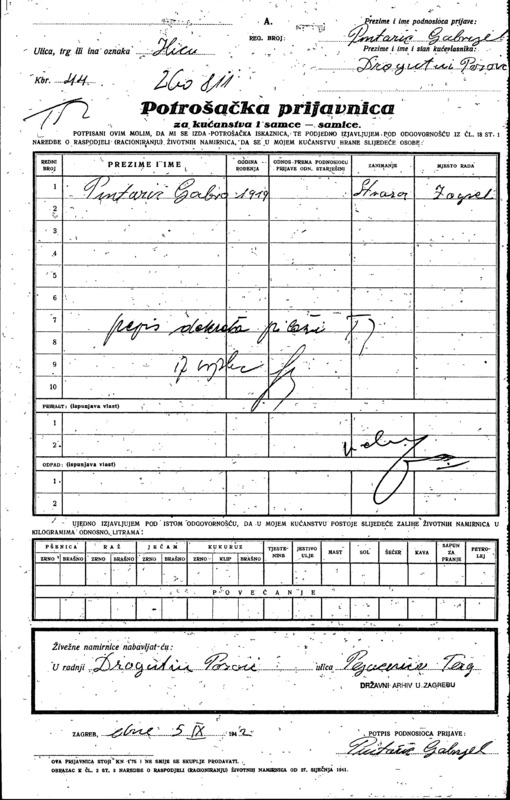 A.
REG. BROJ:
Prezime i ime podnosioca prijave:
Pintarić Gabrijel
Prezime i ime i stan kućevlasnika:
Dragutin
Ulica, trg ili ina oznaka Ilica
Kbr. 44
260 811
Potrošačka prijavnica
za kućanstva i samce — samice.
POTPISANI OVIM MOLIM, DA MI SE IZDA POTROŠAČKA ISKAZNICA, TE PODJEDNO IZJAVLJUJEM POD ODGOVORNOŠĆU IZ ČL. 18 ST. 1
NAREDBE O RASPODJELI (RACIONIRANJU) ŽIVOTNIH NAMIRNICA, DA SE U MOJEM KUĆANSTVU HRANE SLIJEDEĆE OSOBE:
REDNI BROJ PREZIME I IME GODINA ROĐENJA ODNOS PREMA PODNOSIOCU PRIJAVE ODN. STARJEŠINI ZANIMANJE MJESTO RADA
1 Pintarić Gabro 1919 Zagreb
2
3
4
5
6
7
8
9
10
PRIRAST: (ispunjava vlast)
1
2
OTPAD: (ispunjava vlast)
1
2
UJEDNO IZJAVLJUJEM POD ISTOM ODGOVORNOŠĆU, DA U MOJEM KUĆANSTVU POSTOJE SLIJEDEĆE ZALIHE ŽIVOTNIH NAMIRNICA U
KILOGRAMIMA ODNOSNO LITRAMA:
PŠENICA RAŽ JEČAM KUKURUZ TJESTENINE JESTIVO ULJE MAST SOL ŠEĆER KAVA SAPUN ZA PRANJE PETROLEJ
ZRNO BRAŠNO ZRNO BRAŠNO ZRNO BRAŠNO ZRNO KLIP BRAŠNO
POVEĆANJE
Živežne namirnice nabavljat ću:
U radnji Dragutin ulica
DRŽAVNI ARHIV U ZAGREBU
ZAGREB, dne 5 IX 1942
POTPIS PODNOSIOCA PRIJAVE:
Pintarić Gabrijel
OVA PRIJAVNICA STOJI KN 0.75 I NE SMIJE SE SKUPLJE PRODAVATI.
OBRAZAC K ČL. 2 ST. 2 NAREDBE O RASPODJELI (RACIONIRANJU) ŽIVOTNIH NAMIRNICA OD 27. SIJEČNJA 1941.